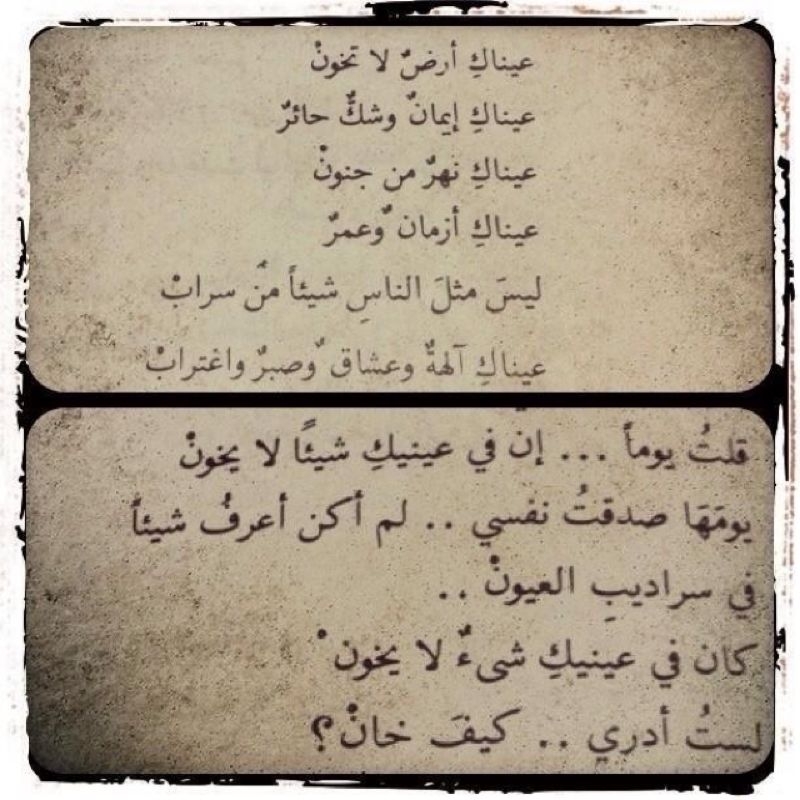 عيناكِ أرضٌ لا تخونْ
عيناكِ إيمانٌ وشكٌّ حائرٌ
عيناكِ نهرٌ من جنونْ
عيناكِ أزمان ٌوعمرٌ
ليسَ مثلَ الناسِ شيئاً منْ سرابْ
عيناكِ آلهةٌ وعشاق ٌوصبرٌ واغترابْ
قلتُ يوماً ... إن في عينيكِ شيئًا لا يخونْ
يومَهَا صدقتُ نفسي .. لم أكن أعرفُ شيئاً
في سراديبِ العيونْ ..
كان في عينيكِ شىءٌ لا يخون ْ
لستُ أدري .. كيفَ خانْ؟